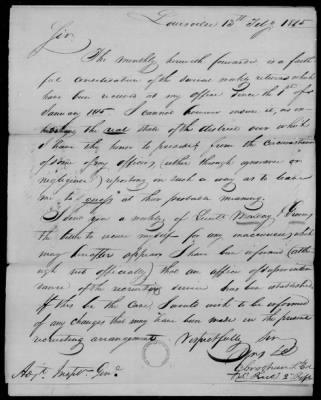 Louisville 12th Feby 1815
Sir
The monthly herewith forwarded is a faith
ful consolidation of the various returns which
have been received at my office since the 1st of
January 1815. I cannot however insure it, as
the real state of the district over which
I have the honor to preside, from the circumstance
of some of my officers (either through ignorance or
negligence) reporting in such a way as to leave
me to "guess" at their probable meaning.
I send you a of Lieuts &
the better to secure myself for any inaccuracy which
may hereafter appear. I have been informed (altho
ugh not officially) that an officer of
of the recruiting service has been established
If this be the case I would wish to be informed
of any changes that may have been made in the present
recruiting arrangement. Respectfully Sir
Adjt. & Inspr. Genl.